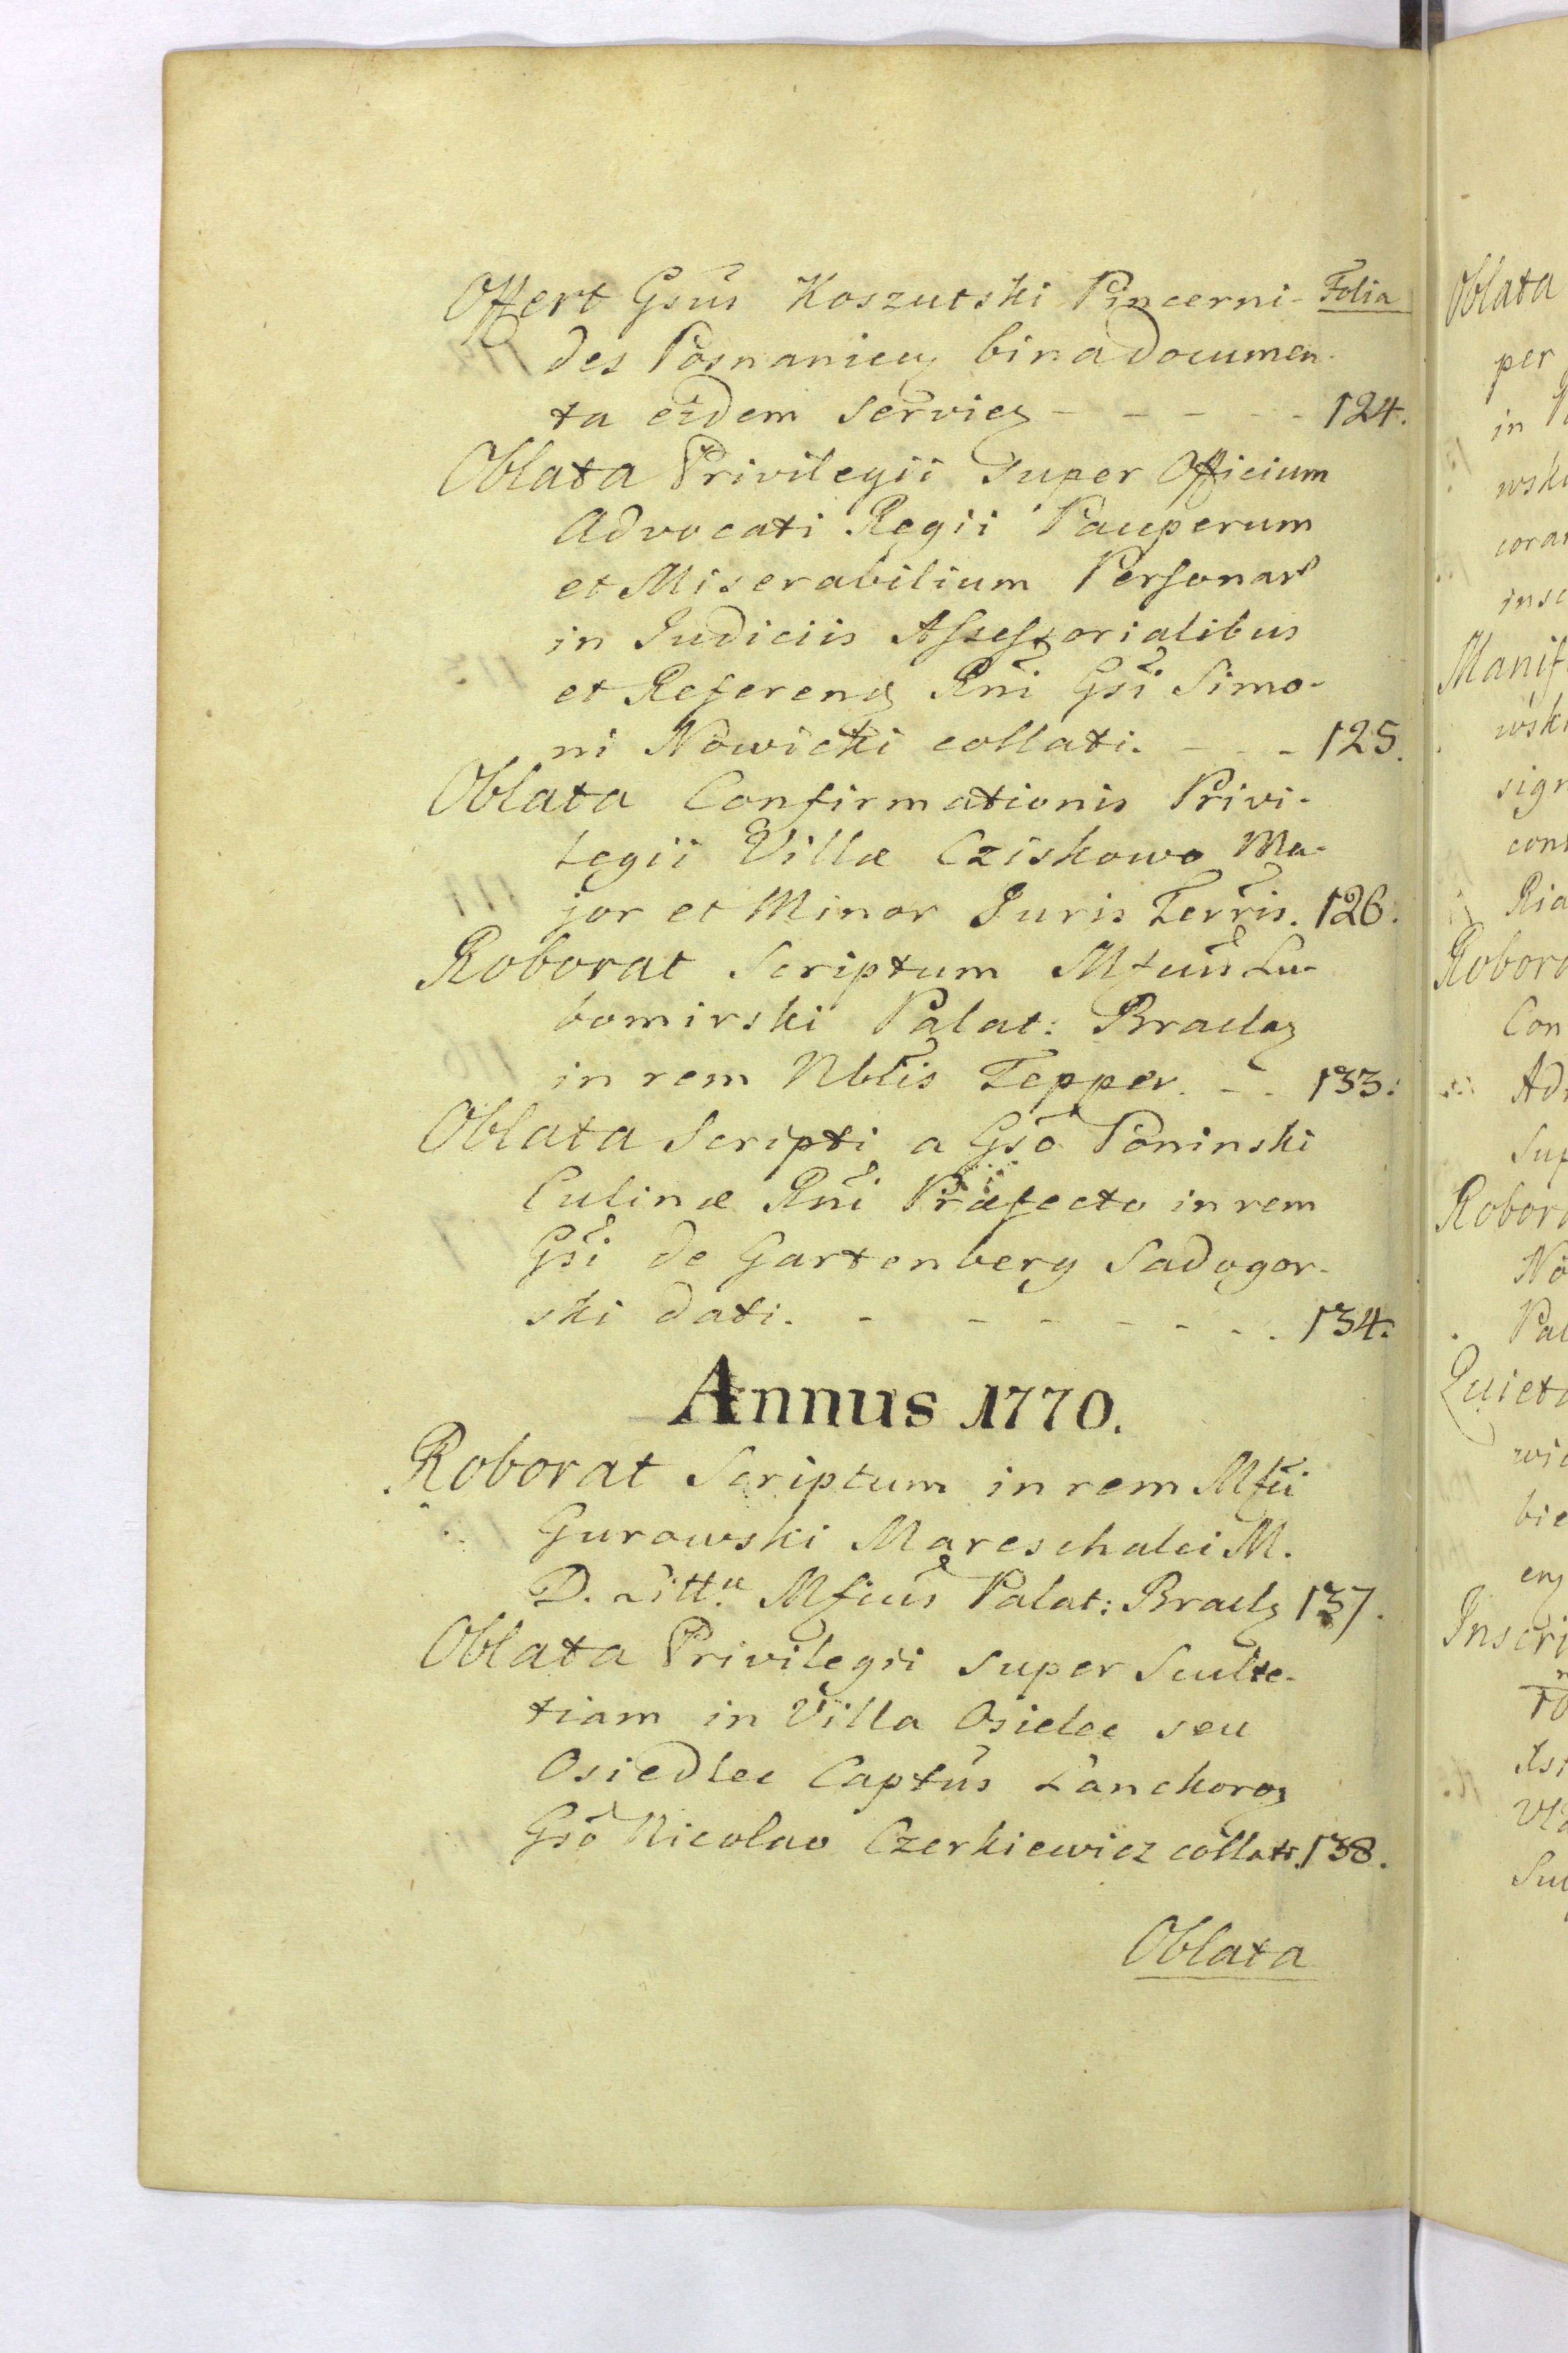 Folia
Offert Gsus Koszutski Pincerni-
des Posnanien binadocumen-
ta eidem servien - - - - - 124.
Oblata Privilegii super Officium
Advocati Regii Pauperum
et Miserabilium Personar
in Judiciis Assessorialibus
et Referend Rni Gsi Simo-
ni Nowicki collati. - - - 125.
Oblata Confirmationis Privi-
legii Villæ Cziskowo Ma-
jor et Minor Juris Terris. 126.
Roborat Scriptum Mfcus Lu-
bomirski Palat: Braclaz
in rem Nblis Tepper. - - 133.
Oblata Scripti a Gso Poninski
Culinæ Rni Præfecto in rem
Gsi de Gartenberg Sadogor-
ski dati. - - - - - - - 134.
Annus 1770.
Roborat Scriptum in rem Mfci
Gurowski Mareschalci M.
D. Litt. Mfcus Palat: Braclz 137.
Oblata Privilegii super Sculte-
tiam in Villa Osielec seu
Osiedlec Captus Lanckoroz
Gso Nicolao Czerkiewicz collati. 138.
Oblata
Oblata
per
in
wski
coram
insc
Manif
wski
sign
cont
Ria
Robora
Con
Ad
Sup
Robora
No
Pal
Quieta
wic
bie
Inscri
Su